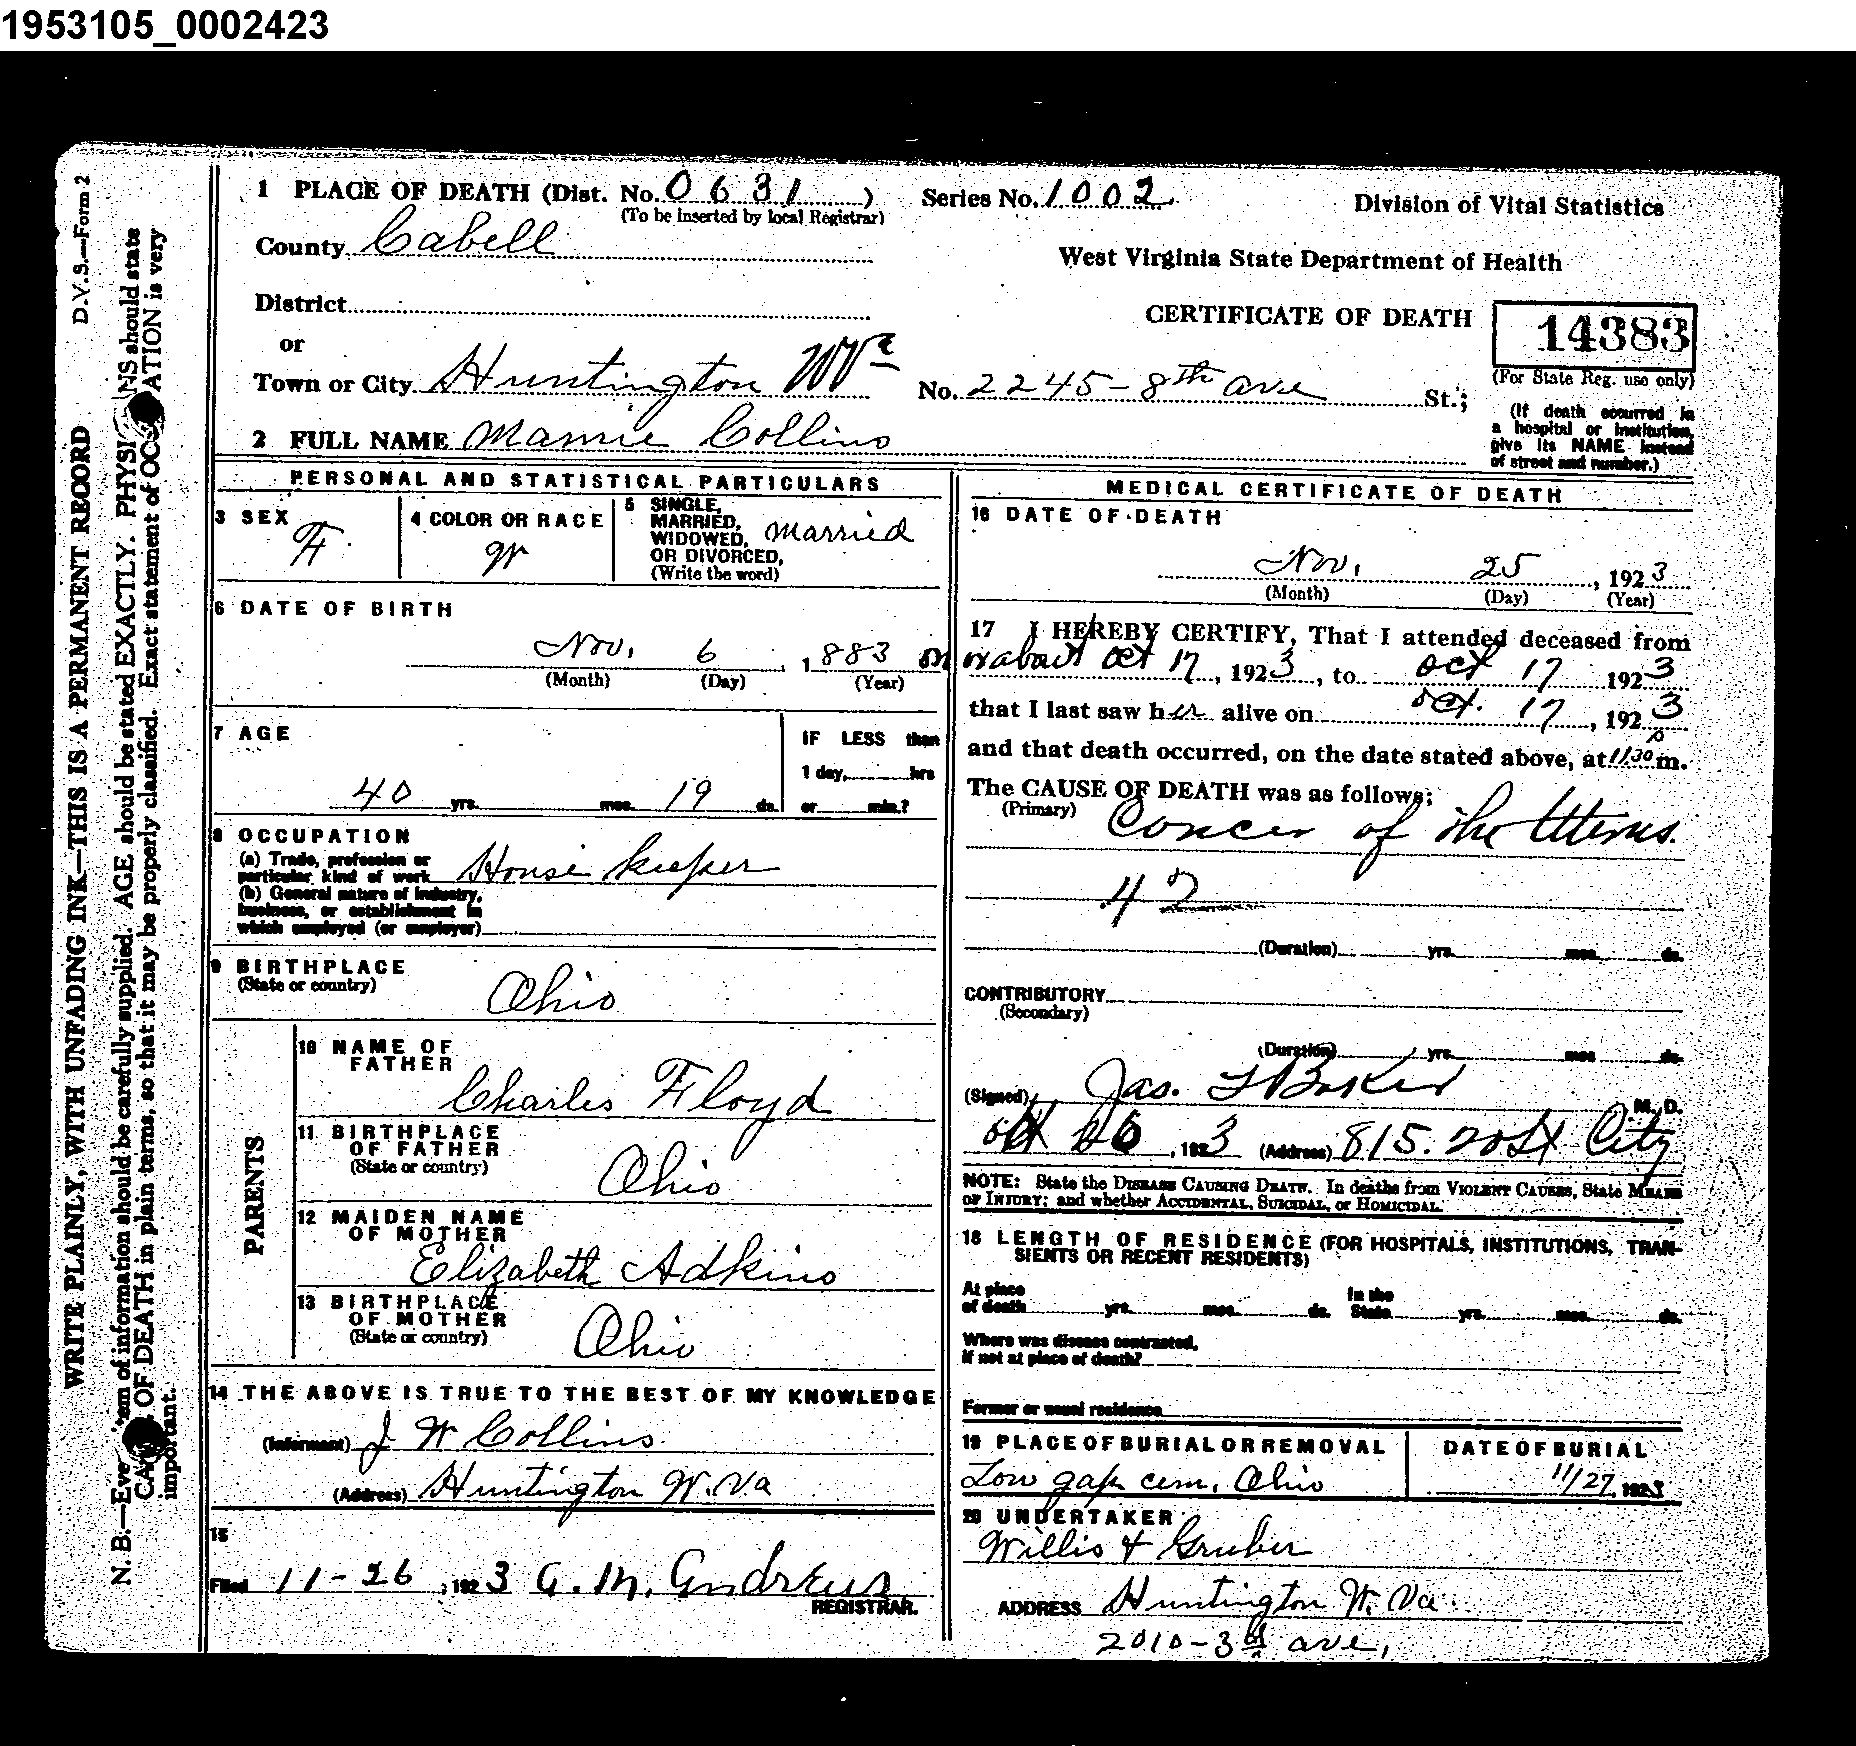 1953105_0002423
D.V.S.—Form 2
WRITE PLAINLY, WITH UNFADING INK—THIS IS A PERMANENT RECORD
N. B.—Eve tem of information should be carefully supplied. AGE should be stated EXACTLY. PHYSI NS should state
CA OF DEATH in plain terms, so that it may be properly classified. Exact statement of OC ATION is very
important.
1 PLACE OF DEATH (Dist. No. 0631 )
(To be inserted by local Registrar)
Series No. 1002
Division of Vital Statistics
County Cabell
West Virginia State Department of Health
District
CERTIFICATE OF DEATH
14383
(For State Reg. use only)
or
Town or City Huntington WVa
No. 2245-8th ave St.;
(If death occurred in
a hospital or institution,
give its NAME instead
of street and number.)
2 FULL NAME Mamie Collins
PERSONAL AND STATISTICAL PARTICULARS
3 SEX
F
4 COLOR OR RACE
W
5 SINGLE,
MARRIED,
WIDOWED,
OR DIVORCED,
(Write the word)
married
6 DATE OF BIRTH
Nov. 6, 1883
(Month) (Day) (Year)
7 AGE
40 yrs. mos. 19 ds.
IF LESS than
1 day, hrs
or min.?
8 OCCUPATION
(a) Trade, profession or
particular kind of work House keeper
(b) General nature of industry,
business, or establishment in
which employed (or employer)
9 BIRTHPLACE
(State or country)
Ohio
PARENTS
10 NAME OF
FATHER
Charles Floyd
11 BIRTHPLACE
OF FATHER
(State or country)
Ohio
12 MAIDEN NAME
OF MOTHER
Elizabeth Adkins
13 BIRTHPLACE
OF MOTHER
(State or country)
Ohio
14 THE ABOVE IS TRUE TO THE BEST OF MY KNOWLEDGE
(Informant) J W Collins
(Address) Huntington W. Va
15
Filed 11-26, 1923 G. M. Andrews
REGISTRAR.
MEDICAL CERTIFICATE OF DEATH
16 DATE OF DEATH
Nov. 25, 1923
(Month) (Day) (Year)
17 I HEREBY CERTIFY, That I attended deceased from
on or about Oct 17, 1923, to Oct 17 1923
that I last saw her alive on Oct. 17, 1923
and that death occurred, on the date stated above, at 11:30 p m.
The CAUSE OF DEATH was as follows:
(Primary) Concer of the Uterus.
42
(Duration) yrs. mos. ds.
CONTRIBUTORY
(Secondary)
(Duration) yrs. mos. ds.
(Signed) Jas. Baker M. D.
26, 1923 (Address) 815. 20 St City
NOTE: State the DISEASE CAUSING DEATH. In deaths from VIOLENT CAUSES, State MEANS
OF INJURY; and whether ACCIDENTAL, SUICIDAL, or HOMICIDAL.
18 LENGTH OF RESIDENCE (FOR HOSPITALS, INSTITUTIONS, TRAN-
SIENTS OR RECENT RESIDENTS)
At place
of death yrs. mos. ds.
In the
State yrs. mos. ds.
Where was disease contracted,
if not at place of death?
Former or usual residence
19 PLACE OF BURIAL OR REMOVAL
Low gap cem, Ohio
DATE OF BURIAL
11/27, 1923
20 UNDERTAKER
Willis & Gruber
ADDRESS Huntington W. Va.
2010-3rd ave,